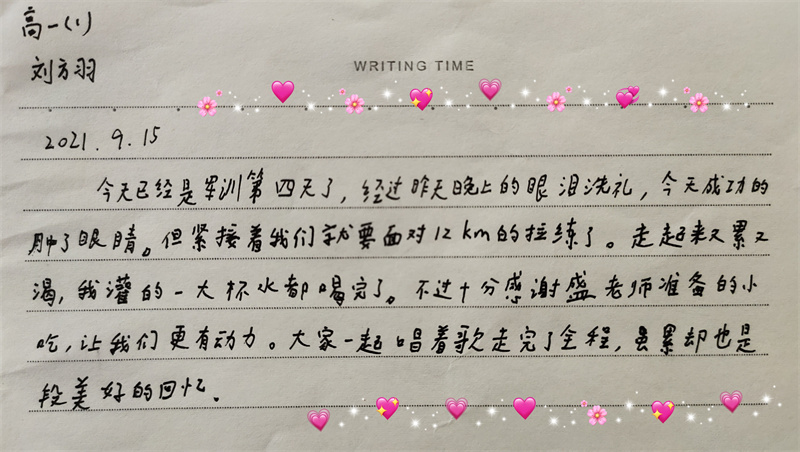 高一(1)
刘方羽
WRITING TIME
2021.9.15
今天已经是军训第四天了，经过昨天晚上的眼泪洗礼，今天成功的
肿了眼睛。但紧接着我们就要面对12km的拉练了。走起来又累又
渴，我灌的一大杯水都喝完了。不过十分感谢盛老师准备的小
吃，让我们更有动力。大家一起唱着歌走完了全程，虽累却也是
段美好的回忆。